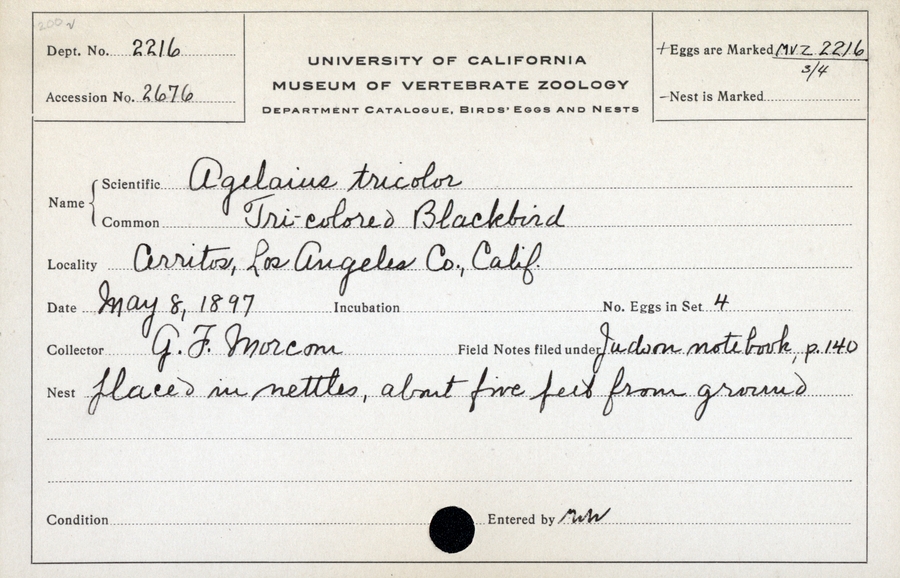 Dept. No. 2216
Accession No. 2676
UNIVERSITY OF CALIFORNIA
MUSEUM OF VERTEBRATE ZOOLOGY
DEPARTMENT CATALOGUE, BIRDS' EGGS AND NESTS
+Eggs are Marked MVZ 2216
3/4
-Nest is Marked
Name Scientific Agelaius tricolor
Common Tri-colored Blackbird
Locality Cerritos, Los Angeles Co., Calif.
Date May 8, 1897 Incubation No. Eggs in Set 4
Collector G. F. Morcom Field Notes filed under Judson notebook, p.140
Nest placed in nettles, about five feet from ground
Condition Entered by